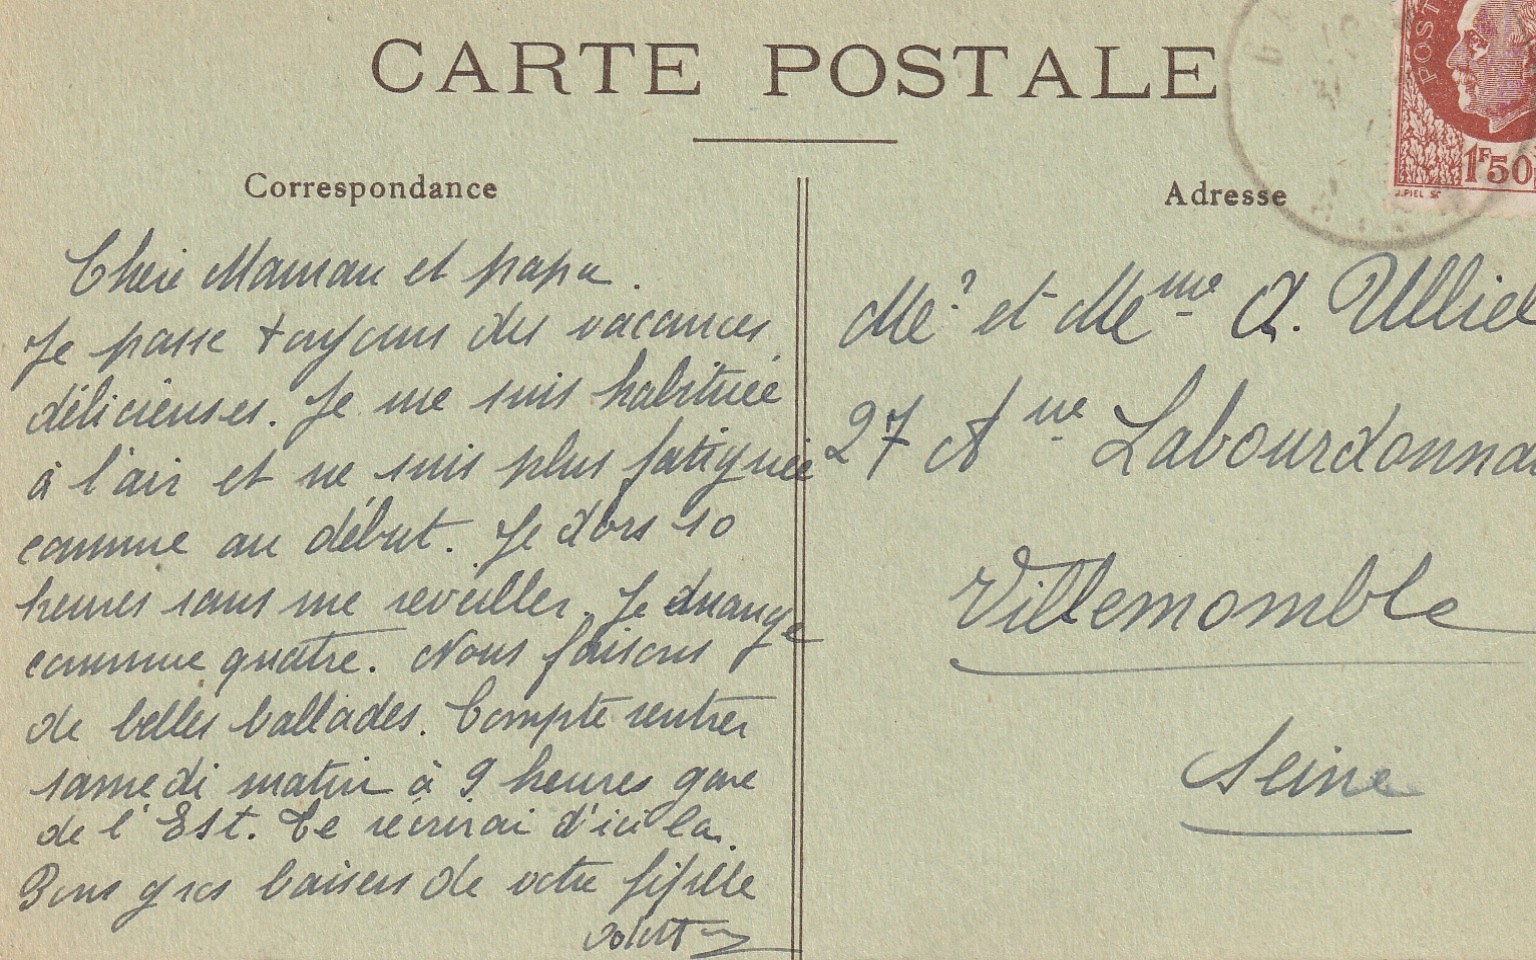 CARTE POSTALE
POST
1F50
J.PIEL SC
Correspondance
Adresse
Chère Maman et papa.
Je passe toujours des vacances
délicieuses. Je me suis habituée
à l'air et ne suis plus fatiguée
comme au début. Je dors 10
heures sans me reveiller. Je mange
comme quatre. Nous faisons
de belles ballades. Compte rentrer
samedi matin à 9 heures gare
de l'Est. Te récrirai d'ici la.
Bons gros baisers de votre fifille
Mr et Mme A. Ulliel
27 Ave Labourdonna
Villemomble
Seine